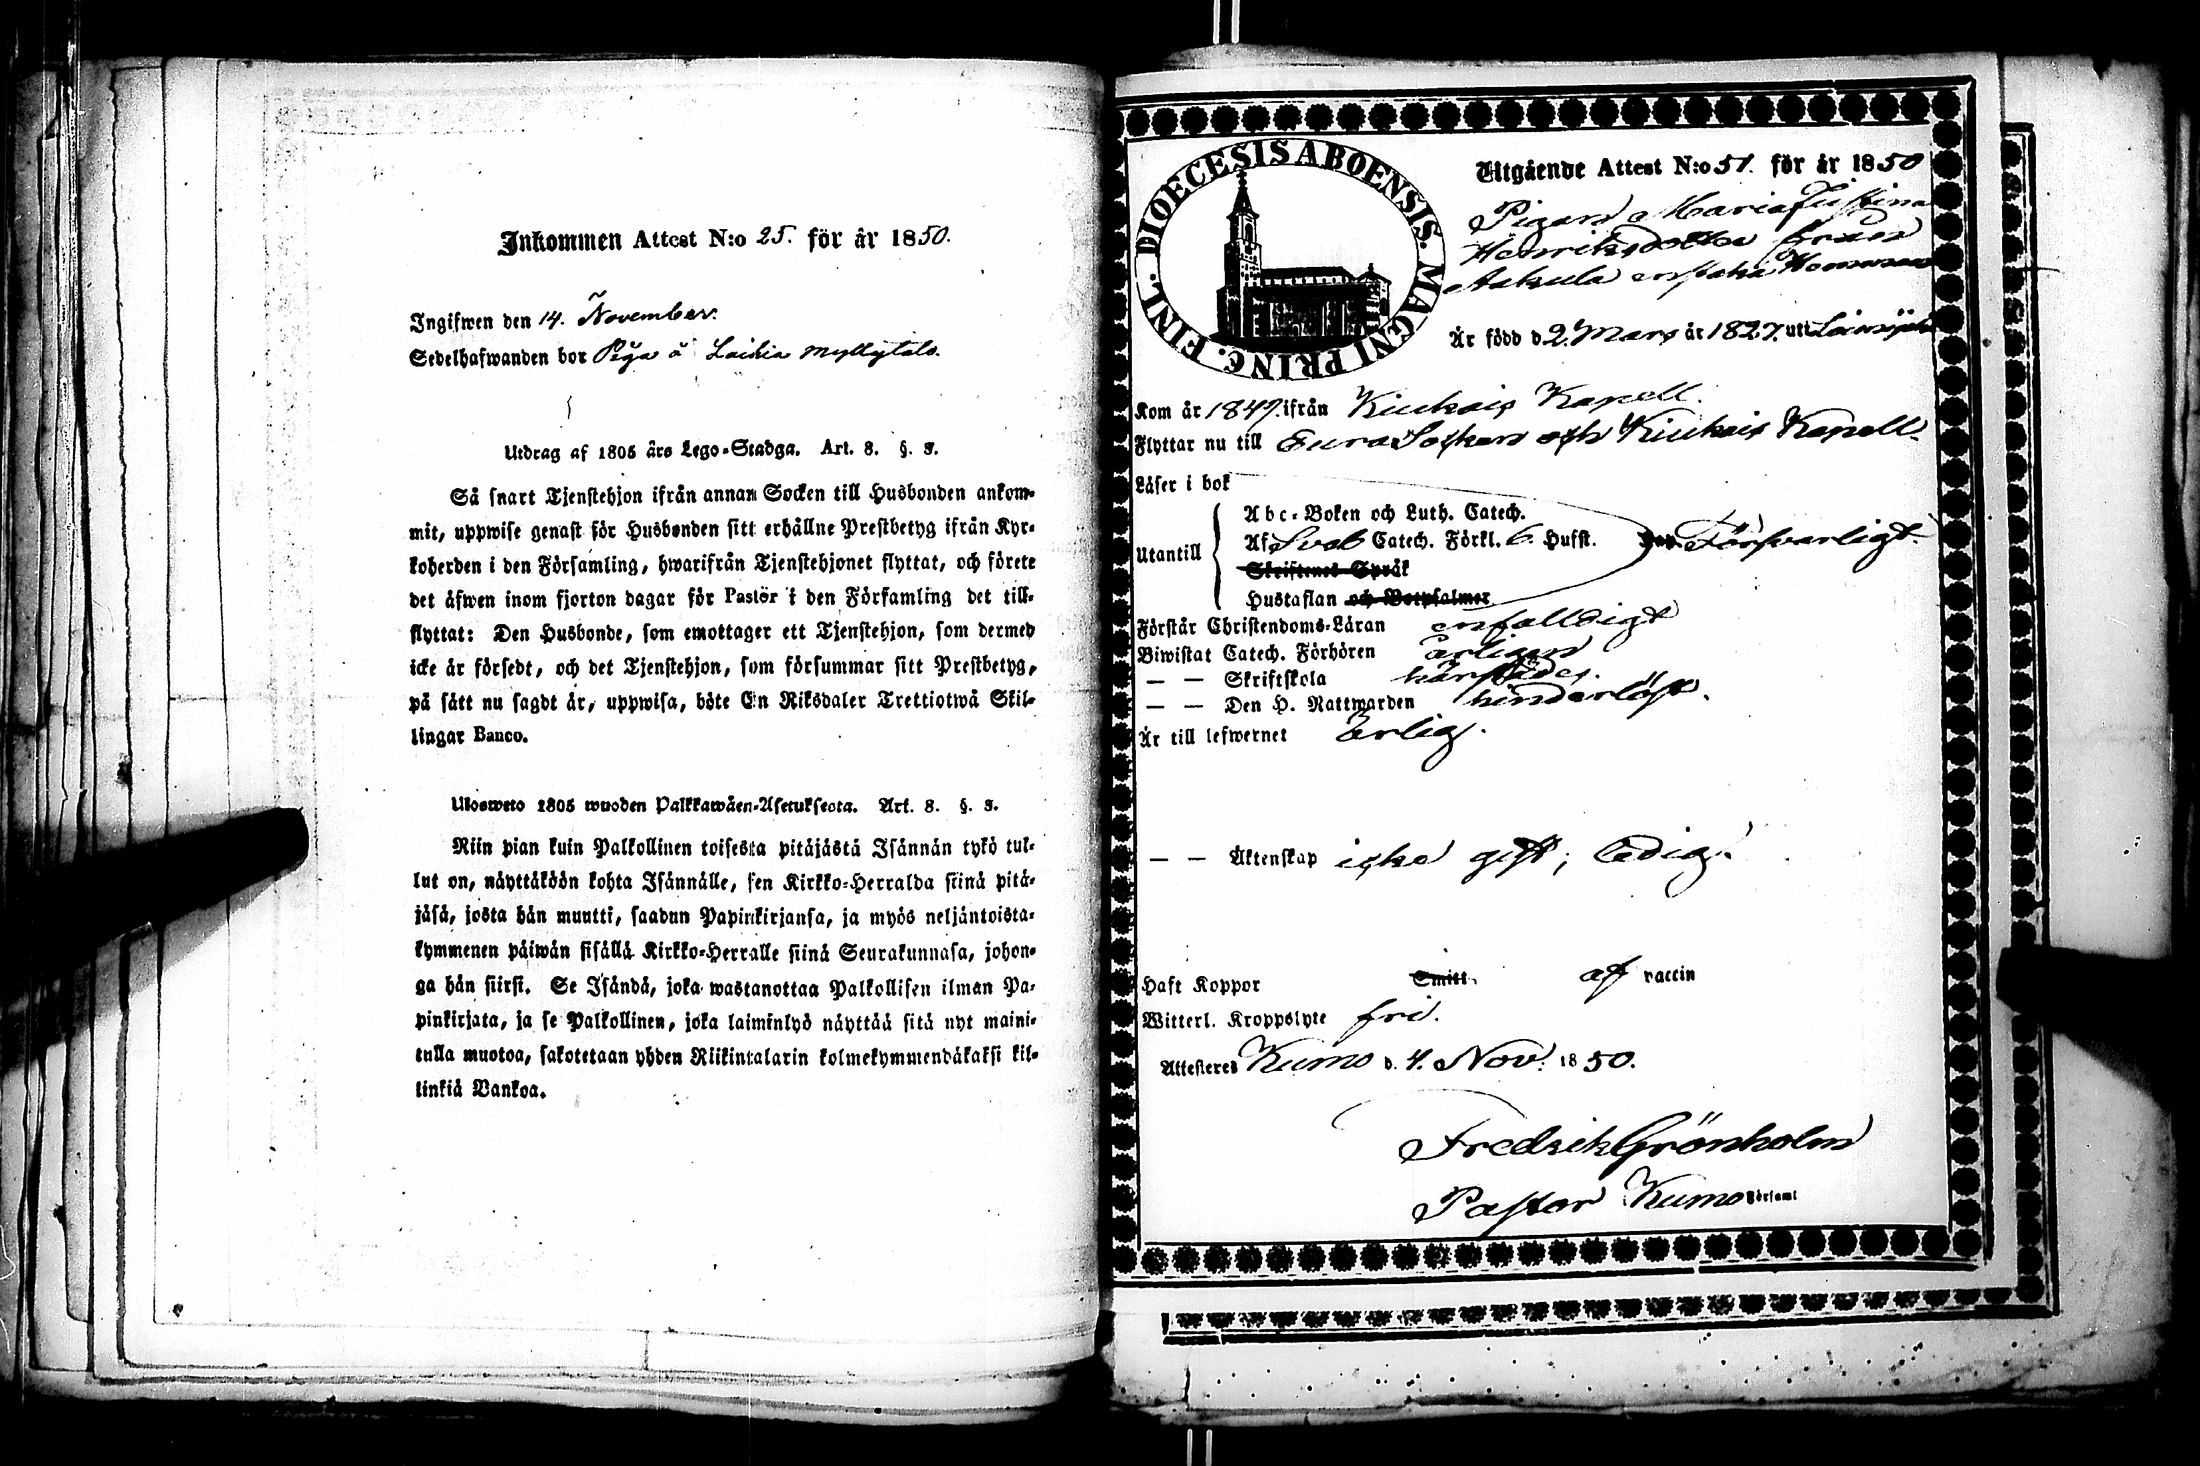 Inkommen Attest N:o 25. för år 1850.
Ingifwen den 14. November.
Sedelhafwanden bor Piga å Laihia Myllytalo.
Utdrag af 1805 års Lego-Stadga. Art. 8. §. 3.
Så snart Tjenstehjon ifrån annan Socken till Husbonden ankom-
mit, uppwise genast för Husbonden sitt erhållne Prestbetyg ifrån Kyr-
koherden i den Församling, hwarifrån Tjenstehjonet flyttat, och förete
det äfwen inom fjorton dagar för Pastor i den Församling det till-
flyttat: Den Husbonde, som emottager ett Tjenstehjon, som dermed
icke är försedt, och det Tjenstehjon, som försummar sitt Prestbetyg,
på sätt nu sagdt är, uppwisa, böte En Riksdaler Trettiotwå Skil-
lingar Banco.
Ulosweto 1805 wuoden Palkkawäen-Asetuksesta. Art. 8. §. 3.
Niin pian kuin Palkollinen toisesta pitäjästä Isännän tykö tul-
lut on, näyttäköön kohta Isännälle, sen Kirkko-Herralda siinä pitä-
jäsä, josta hän muutti, saadun Papinkirjansa, ja myös neljäntoista-
kymmenen päiwän sisällä Kirkko-Herralle siinä Seurakunnasa, johon-
ga hän siirsi. Se Isändä, joka wastanottaa Palkollisen ilman Pa-
pinkirjata, ja se Palkollinen, joka laiminlyö näyttää sitä nyt maini-
tulla muotoa, sakotetaan yhden Riikintalarin kolmekymmendäkaksi kil-
linkiä Bankoa.
DIOECESIS ABOENSIS. MAGNI PRINC. FINL.
Utgående Attest N:o 51. för år 1850
Pigan Maria Justina
Henriksdotter från
Aakula
Är född d 2. Mars år 1827. uti
Kom år 1849. ifrån Kiukais Kapell.
Flyttar nu till Eura Socken och Kiukais Kapell.
Läser i bok
Utantill
Abc-Boken och Luth. Catech.
Af Sveb Catech. Förkl. 6. Hufst. Försvarligt.
Skriftenes Språk
Hustaflan och Botpsalmer
Förstår Christendoms-Läran enfalldigt
Biwistat Catech. Förhören årligen
— — Skriftskola härstädes.
— — Den H. Nattwarden hinderlöst.
Är till lefwernet Ärlig.
— — Äktenskap icke gift; ledig.
Haft Koppor Smitt. af vaccin
Witterl. Kroppslyte fri.
Attesteres Kumo d. 4. Nov. 1850.
Fredrik Grönholm
Pastor Kumo Församl